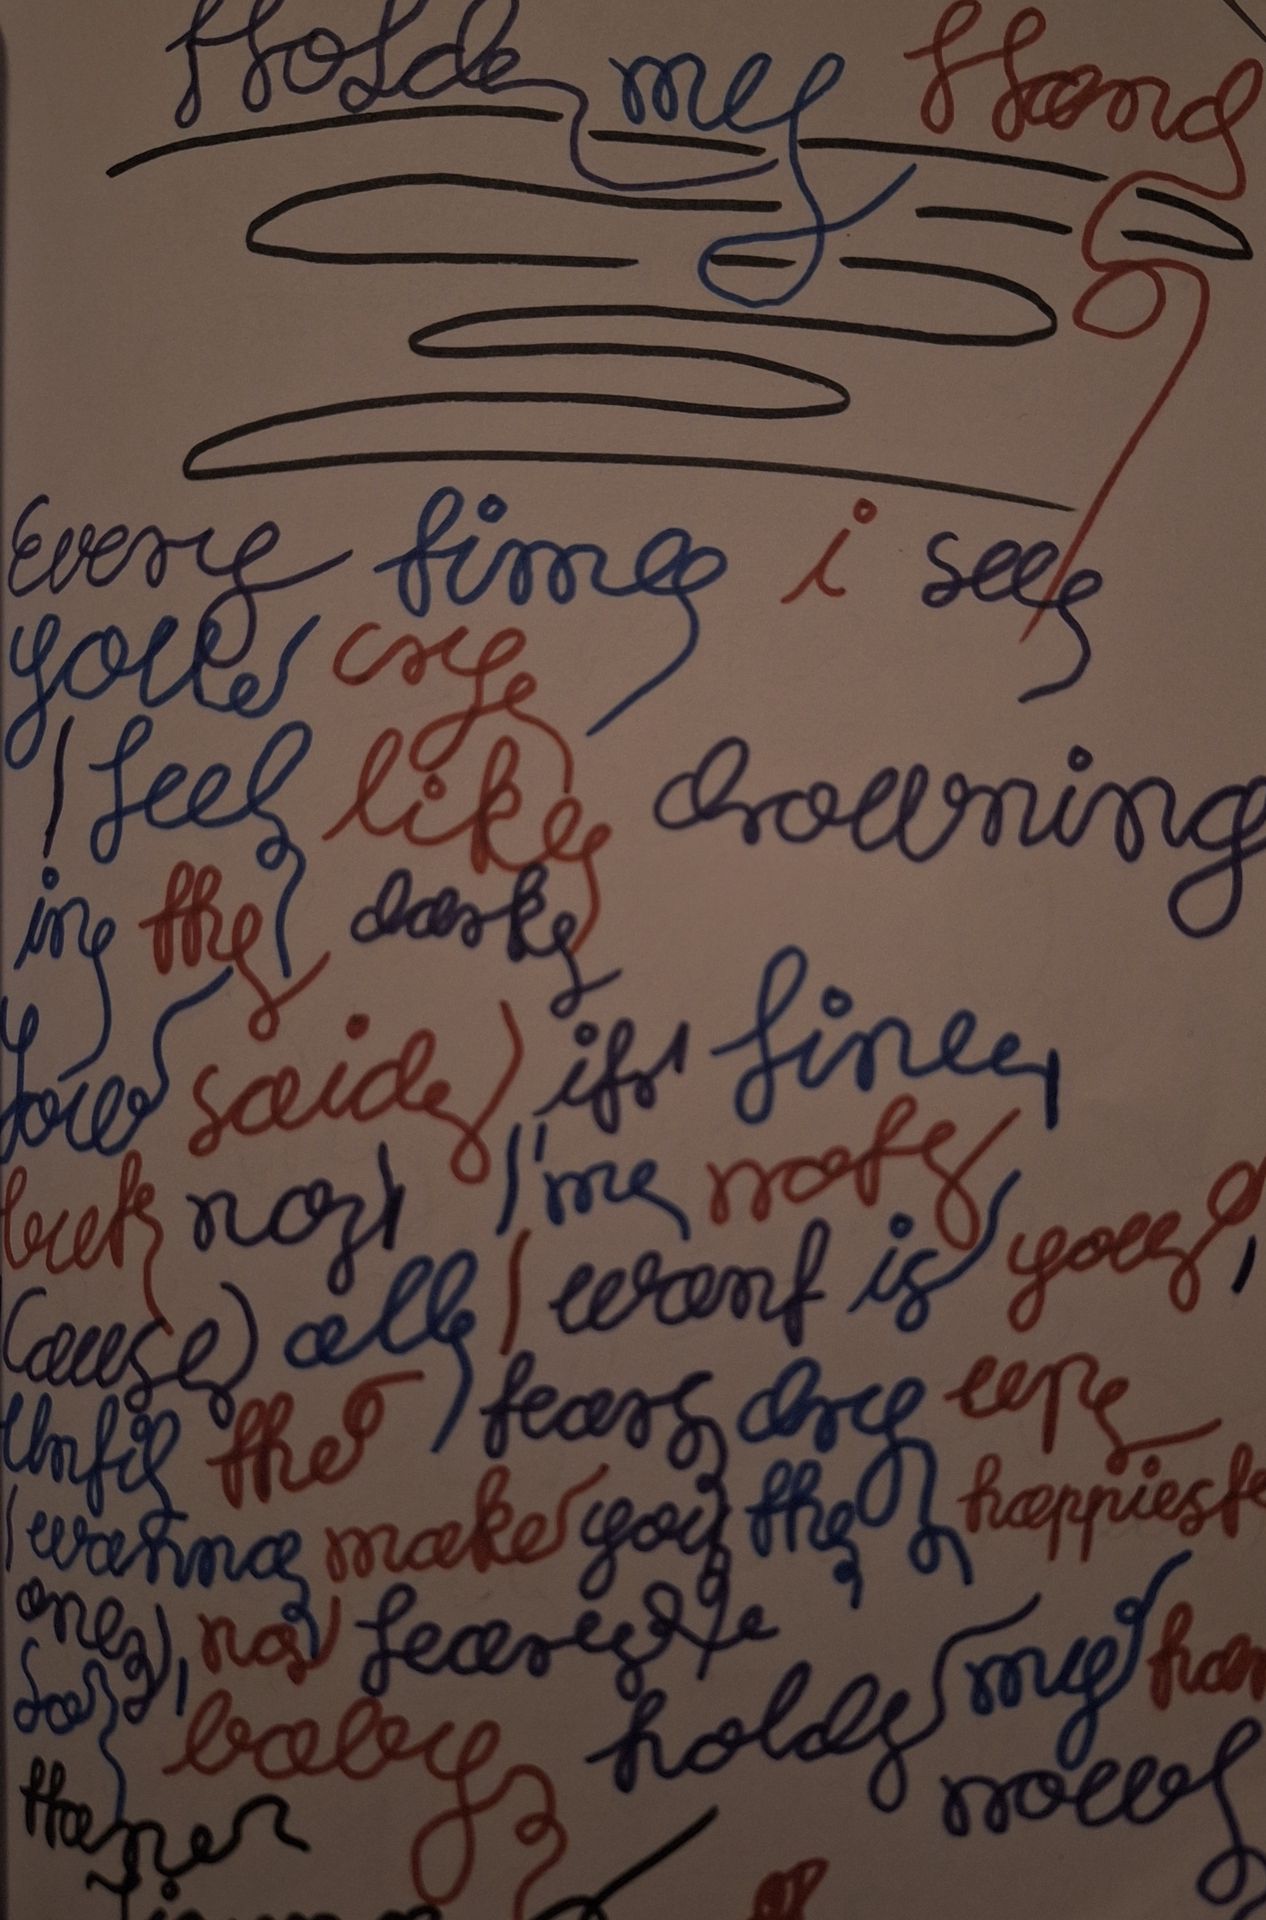 Hold my Hand
Every time i see
you cry
I feel like drowning
in the dark
You said its fine,
but no, I'm not
Cause all I want is you,
Until the tears dry up
I wanna make you the happiest
one, no
so baby hold my
now